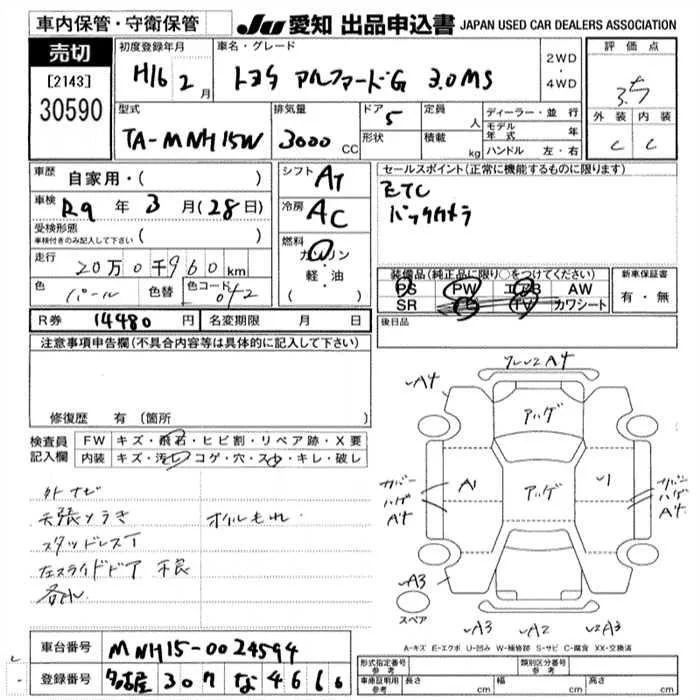 車内保管・守衛保管
JU 愛知 出品申込書 JAPAN USED CAR DEALERS ASSOCIATION
売切
[2143]
30590
初度登録年月
H16 2月
車名・グレード
トヨタ アルファードG 3.0MS
2WD
・
4WD
評価点
3.5
外装 内装
C C
型式
TA-MNH15W
排気量
3000 CC
ドア 5
形状
定員 人
積載 kg
ディーラー・並行
モデル年式 年
ハンドル 左・右
車歴 自家用・( )
車検 R9年3月(28日)
受検形態
車検付きのみ記入して下さい ( )
走行 20万0千960km
色 パール 色替 色コード 042
シフト AT
冷房 AC
燃料
ガソリン
・軽・油
( )
セールスポイント(正常に機能するものに限ります)
ETC
バックカメラ
装備品(純正品に限り○をつけてください)
PS PW エアB AW
SR TV カワシート
新車保証書
有・無
後日品
R券 14480円 名変期限 月 日
注意事項申告欄(不具合内容等は具体的に記入して下さい)
修復歴 有(箇所 )
検査員記入欄
FW キズ・飛石・ヒビ割・リペア跡・X要
内装 キズ・汚レ・コゲ・穴・スレ・キレ・破レ
外ナビ
天張りうき オイルもれ
スタッドレスT
左スライドドア不良
各ハゲ
A4 A4
アハゲ
カバーハゲ A4 A1 アハゲ U1 カバーハゲ A4
A3
スペア
A3 A2 A3
A-キズ E-エクボ U-凹み W-補修跡 S-サビ C-腐食 XX-交換済
車台番号 MNH15-0024594
登録番号 名古屋 307 な 4660
形式指定番号 参考
類別区分番号 参考
車庫証明用 参考 長さ cm 幅 cm 高さ cm